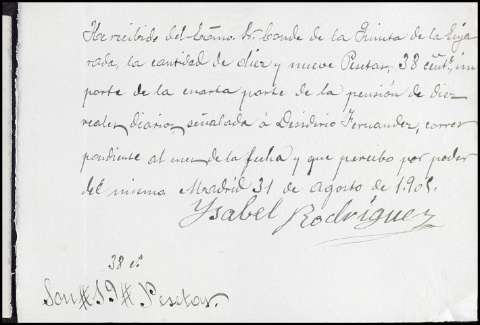 He recibido del Excmo. Sr. Conde de la Quinta de la Enja
rada, la cantidad de diez y nueve Pesetas, 38 cénts, im
porte de la cuarta parte de la pensión de diez
reales diarios señalada á Desiderio Fernandez, corres
pondiente al mes de la fecha y que percibo por poder
del mismo Madrid 31 de agosto de 190
Ysabel Rodríguez
38 cs
Son # 19 # Pesetas.